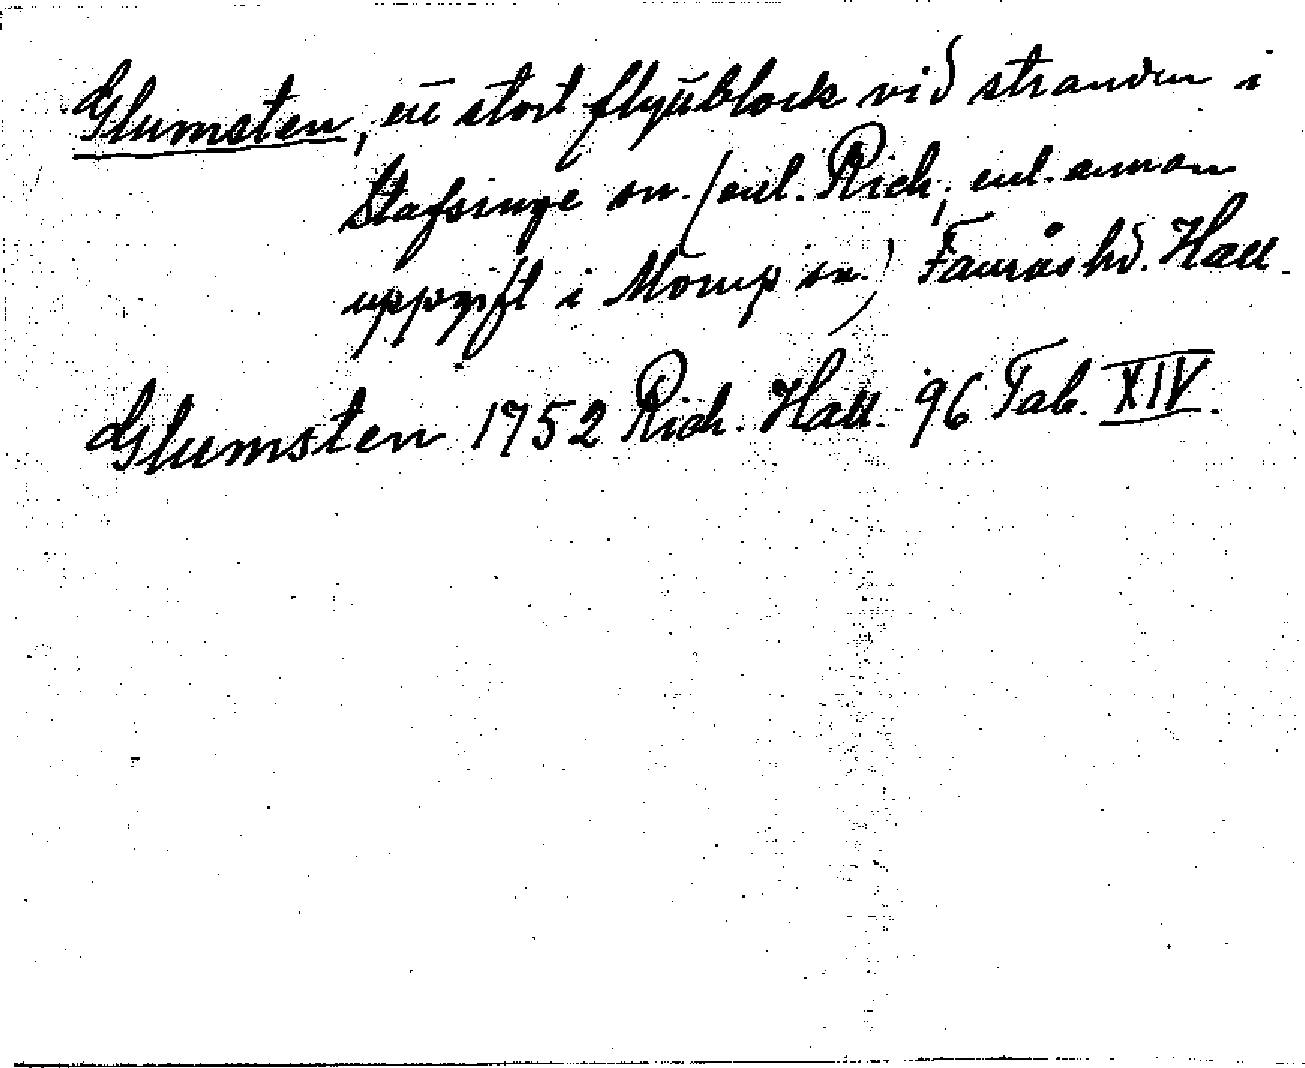 Glumsten, ett stort flyttblock vid stranden i
Stafsinge sn. (enl. Rich, enl. annan
uppgift i Morup sn.) Faurås hd. Hall.
Glumsten 1752 Rich. Hall. 96 Tab. XIV.